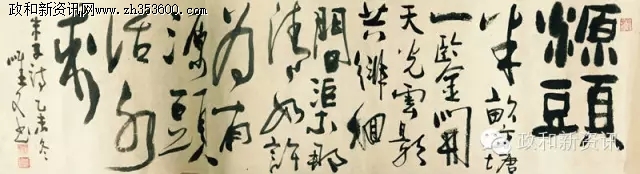 政和网 www.zh353600.com
源頭
半畝方塘
一鑒開
天光雲影
共徘徊
問渠那
清如許
為有
源頭
活水
來
朱子詩乙未冬
政和新资讯